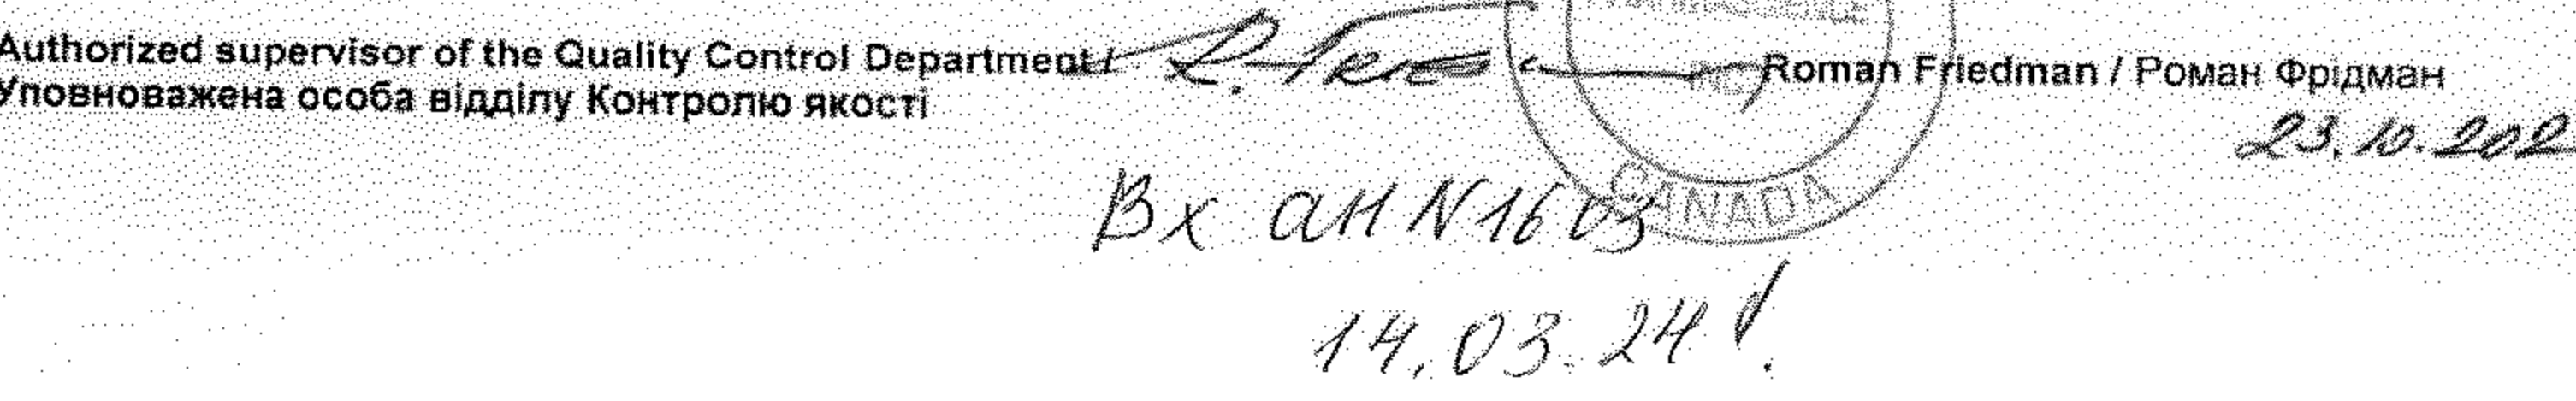 Authorized supervisor of the Quality Control Department / Roman Friedman / Роман Фрідман
Уповноважена особа відділу Контролю якості
23.10.202
CANADA
Вх ан N 1603
14.03.24